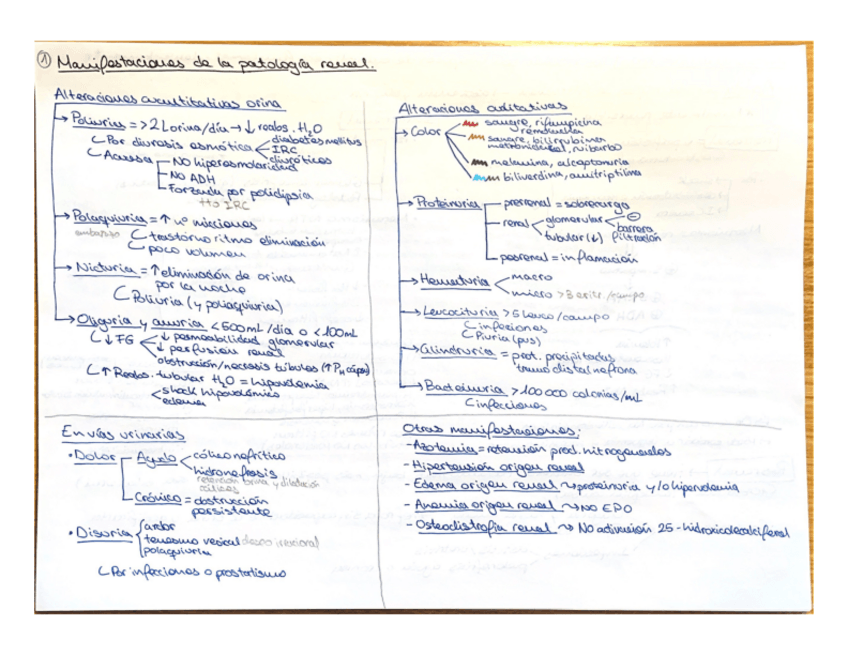 ① Manifestaciones de la patología renal.
Alteraciones cuantitativas orina
Poliuria = >2 L orina/día → ↓ reabs. H₂O
Por diuresis osmótica
diabetes mellitus
IRC
diuréticos
Acuosa
NO hiperosmolaridad
NO ADH
Forzada por polidipsia
tto IRC
Polaquiuria = ↑ nº micciones
embarazo
trastorno ritmo eliminación
poco volumen
Nicturia = ↑ eliminación de orina
por la noche
Poliuria (y polaquiuria)
Oliguria y anuria <500mL/día o <100mL
↓ FG
↓ permeabilidad glomerular
↓ perfusión renal
obstrucción/necrosis túbulos (↑ PH cáps)
↑ Reabs. tubular H₂O = hipovolemia
shock hipovolémico
edemas
Alteraciones cualitativas
Color
sangre, rifampicina
remolacha
sangre, bilirrubina
metronidazol, ruibarbo
melanina, alcaptonuria
biliverdina, amitriptilina
Proteinuria
prerrenal = sobrecarga
renal
glomerular
⊖ barrera
filtración
tubular (↓)
posrenal = inflamación
Hematuria
macro
micro >3 eritr./campo
Leucocituria >5 leuco/campo
infecciones
Piuria (pus)
Cilindruria = prot. precipitadas
tramo distal nefrona
Bacteriuria >100 000 colonias/mL
infecciones
En vías urinarias
• Dolor
Agudo
cólico nefrítico
hidronefrosis
retención orina y dilatación
cálices
Crónico = obstrucción
persistente
• Disuria
ardor
tenesmo vesical deseo irracional
polaquiuria
Por infecciones o prostatismo
Otras manifestaciones:
- Azotemia = retención prod. nitrogenados
- Hipertensión origen renal
- Edema origen renal → proteinuria y/o hipervolemia
- Anemia origen renal → NO EPO
- Osteodistrofia renal → No activación 25-hidroxicolecalciferol